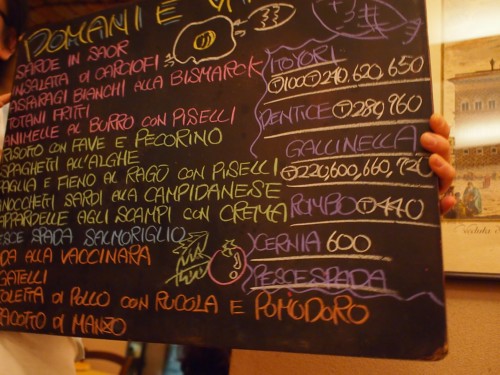 DOMANI E
SARDE IN SAOR
INSALATA di CARCIOFI
ASPARAGI BIANCHI ALLA BISMARCK
TOTANI FRITTI
ANIMELLE AL BURRO CON PISELLI
RISOTTO CON FAVE E PECORINO
SPAGHETTI ALL'ALGHE
PAGLIA E FIENO AL RAGÙ CON PISELLI
GNOCCHETTI SARDI ALLA CAMPIDANESE
PAPPARDELLE AGLI SCAMPI CON CREMA
PESCE SPADA SALMORIGLIO
CODA ALLA VACCINARA
FEGATELLI
COTOLETTA di POLLO CON RUCOLA E POMODORO
STRACOTTO di MANZO
ITOYORI
T100 T240,620,650
DENTICE T280,960
GALLINELLA
T220,600,660,720
ROMBO T440
CERNIA 600
PESCE SPADA